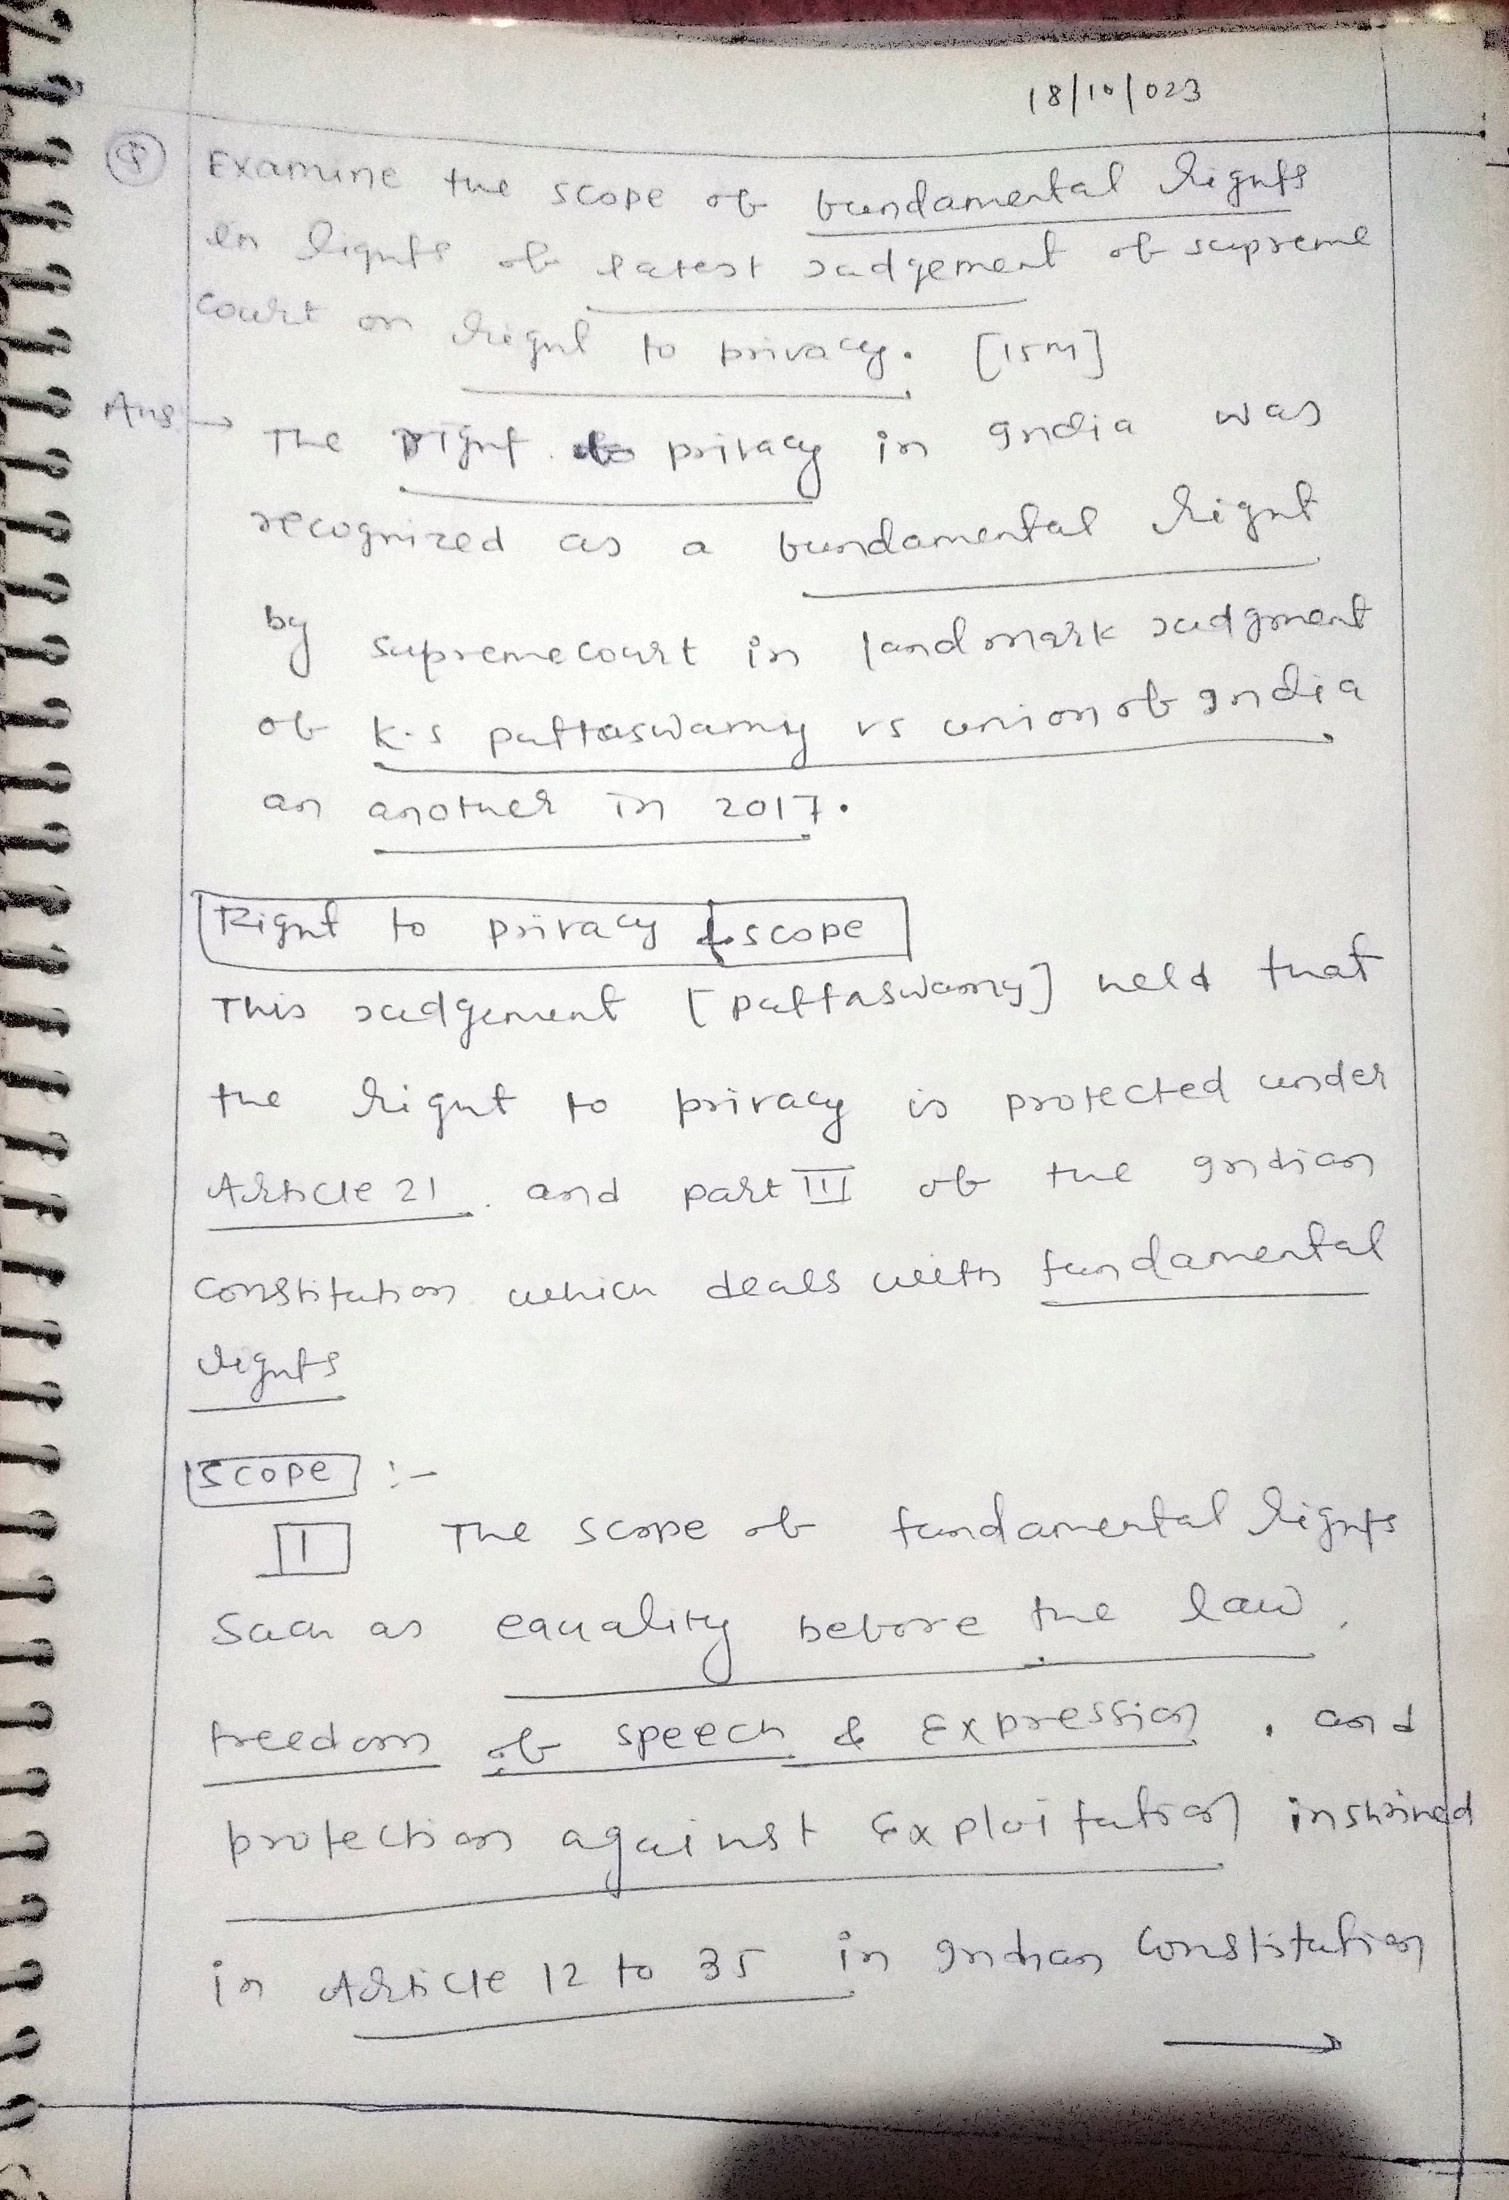 18/10/023
Q Examine the scope of fundamental rights
in lights of latest Judgement of supreme
court on right to privacy. [15M]
Ans → The right to privacy in India was
recognized as a fundamental right
by supreme court in landmark Judgment
of K.S puttaswamy vs union of India
an another in 2017.
Right to privacy & scope
This Judgement [puttaswamy] held that
the right to privacy is protected under
Article 21 and part III of the Indian
constitution which deals with fundamental
rights
Scope :-
1 The scope of fundamental rights
Such as equality before the law,
freedom of speech & Expression, and
protection against Exploitation inshrined
in Article 12 to 35 in Indian Constitution
→